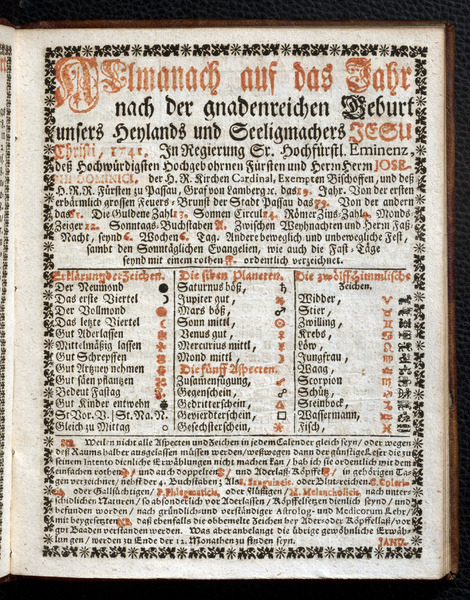 Allmanach auf das Jahr
nach der gnadenreichen Geburt
unsers Heylands und Seeligmachers JESU
Christi, 1741. In Regierung Sr. Hochfürstl. Eminenz,
deß Hochwürdigsten Hochgebohrnen Fürsten und Herrn Herrn JOSE-
der H. R. Kirchen Cardinal, Exempten Bischoffen, und deß
H. R. R. Fürsten zu Passau, Graf von Lamberg &c. das 19. Jahr. Von der ersten
erbärmlich grossen Feuers-Brunst der Stadt Passau das 79. Von der andern
das 61. Die Guldene Zahl 13. Sonnen Circul 14. Römer Zins-Zahl 4. Monds-
Zeiger 12. Sonntags-Buchstaben A. Zwischen Weyhnachten und Herrn Faß-
Nacht, seynd 6. Wochen 6. Tag. Andere beweglich und unbewegliche Fest,
sambt den Sonntäglichen Evangelien, wie auch die Fast-Täge
seynd mit einem rothen ordentlich verzeichnet.
Erklärung der Zeichen.
Der Neumond
Das erste Viertel
Der Vollmond
Das letzte Viertel
Gut Aderlassen
Mittelmäßig lassen
Gut Schrepffen
Gut Artzney nehmen
Gut säen pflantzen
Bedeut Fasttag
Gut Kinder entwehn
St. Vor. V. | St. Na. N.
Gleich zu Mittag
Die siben Planeten.
Saturnus böß, ♄
Jupiter gut, ♃
Mars böß, ♂
Sonn mittl,
Venus gut, ♀
Mercurius mittl, ☿
Mond mittl,
Die fünff Aspecten.
Zusamenfügung, ☌
Gegenschein, ☍
Gedritterschein, △
Gevierdterschein, □
Gesechsterschein,
Die zwölff Himmlische
Zeichen.
Widder, ♈
Stier, ♉
Zwilling, ♊
Krebs, ♋
Löw, ♌
Jungfrau, ♍
Waag, ♎
Scorpion ♏
Schütz, ♐
Steinbock, ♑
Wassermann, ♒
Fisch, ♓
Weilen nicht alle Aspecten und Zeichen in jedem Calender gleich seyn, oder wegen
deß Raums halber ausgelassen müssen werden, weßwegen dann der günstige Leser die zu
seinem Intento dienliche Erwählungen nicht machen kan, hab ich sie ordentlich mit dem
einfachen rothen und auch doppelten und Aderlaß-Köpffel, in gehörigen Ta-
gen verzeichnet, nebst der 4. Buchstaben; Als, Sanguineis, oder Blutreichen, C. Coleri-
cis, oder Gallsichtigen, P. Phlegmaticis, oder Flüßigen, M. Melancholicis, nach unter-
schidlichen Naturen, so absonderlich vor Aderlassen, Köpffelsetzen dienlich seynd, und
befunden worden, nach gründlich- und verständiger Astrolog- und Medicorum Lehr,
mit beygesetzten daß ebenfalls die obbemelte Zeichen bey Ader- oder Köpffellaß, vor
gut Baaden verstanden werden. Was aber anbelangt die übrige gewöhnliche Erwäh-
lungen, werden zu Ende der 12. Monathen zu finden seyn.
JANU-